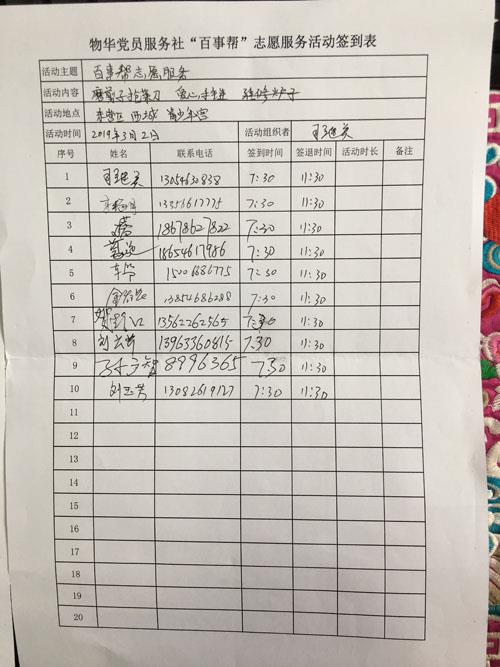 物华党员服务社“百事帮”志愿服务活动签到表
活动主题 百事帮志愿服务
活动内容 磨剪子抢菜刀 爱心手推 维修炉子
活动地点 东营区 西城 青少年宫
活动时间 2019年3月2日 活动组织者
序号 姓名 联系电话 签到时间 签退时间 活动时长 备注
1 13054630838 7:30 11:30
2 13356617775 7:30 11:30
3 18678627822 7:30 11:30
4 18654617986 7:30 11:30
5 15006886775 7:30 11:30
6 13854686288 7:30 11:30
7 13562262565 7:30 11:30
8 刘云 13963360815 7:30 11:30
9 8996365 7:30 11:30
10 刘玉芳 13082619127 7:30 11:30
11
12
13
14
15
16
17
18
19
20